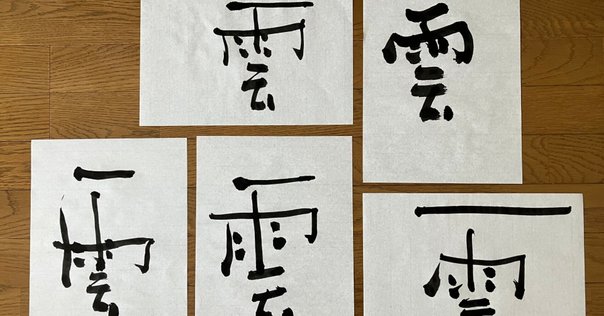 雲
雲
雲
雲
雲